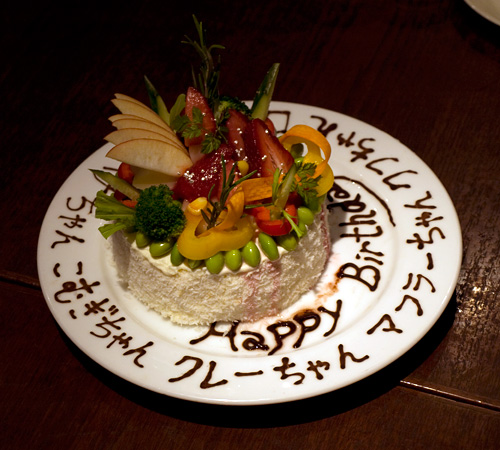 Happy Birthday
ちゃん
こむぎちゃん
クレーちゃん
マフラーちゃん
クワちゃん